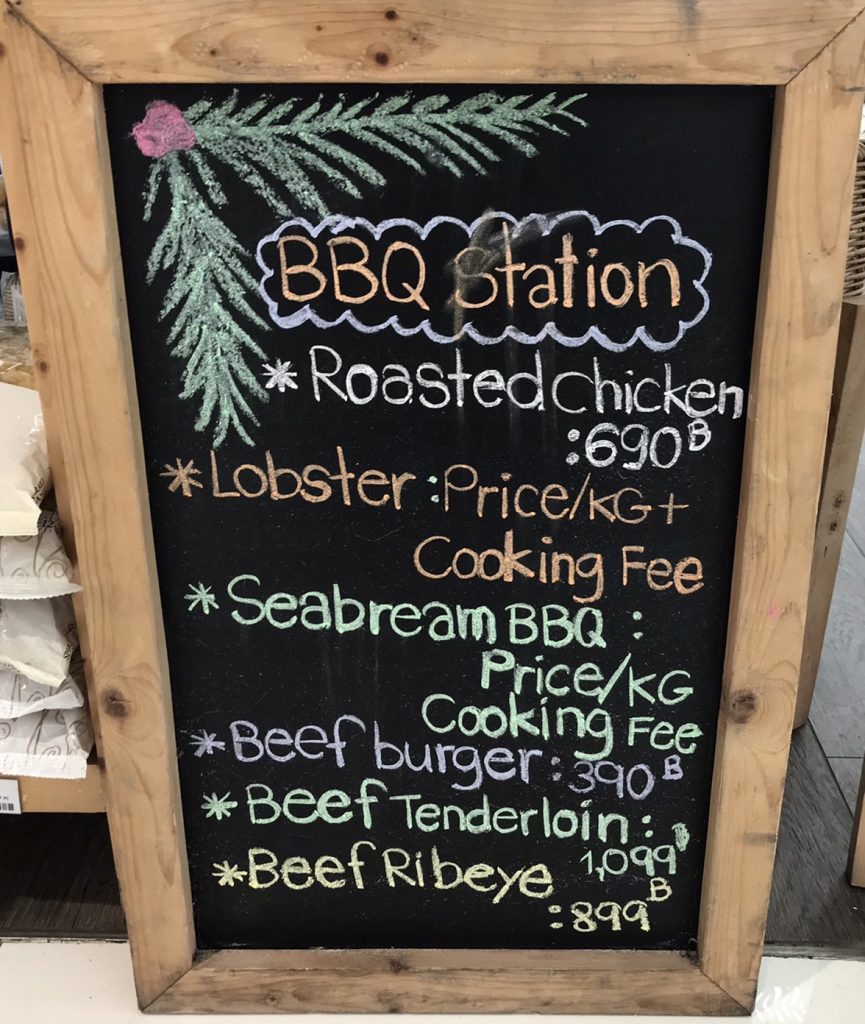 BBQ Station
* Roasted Chicken
:690B
* Lobster : Price/KG+
Cooking Fee
* Seabream BBQ :
Price/KG
Cooking Fee
* Beef burger : 390B
* Beef Tenderloin :
1,099
* Beef Ribeye
:899B